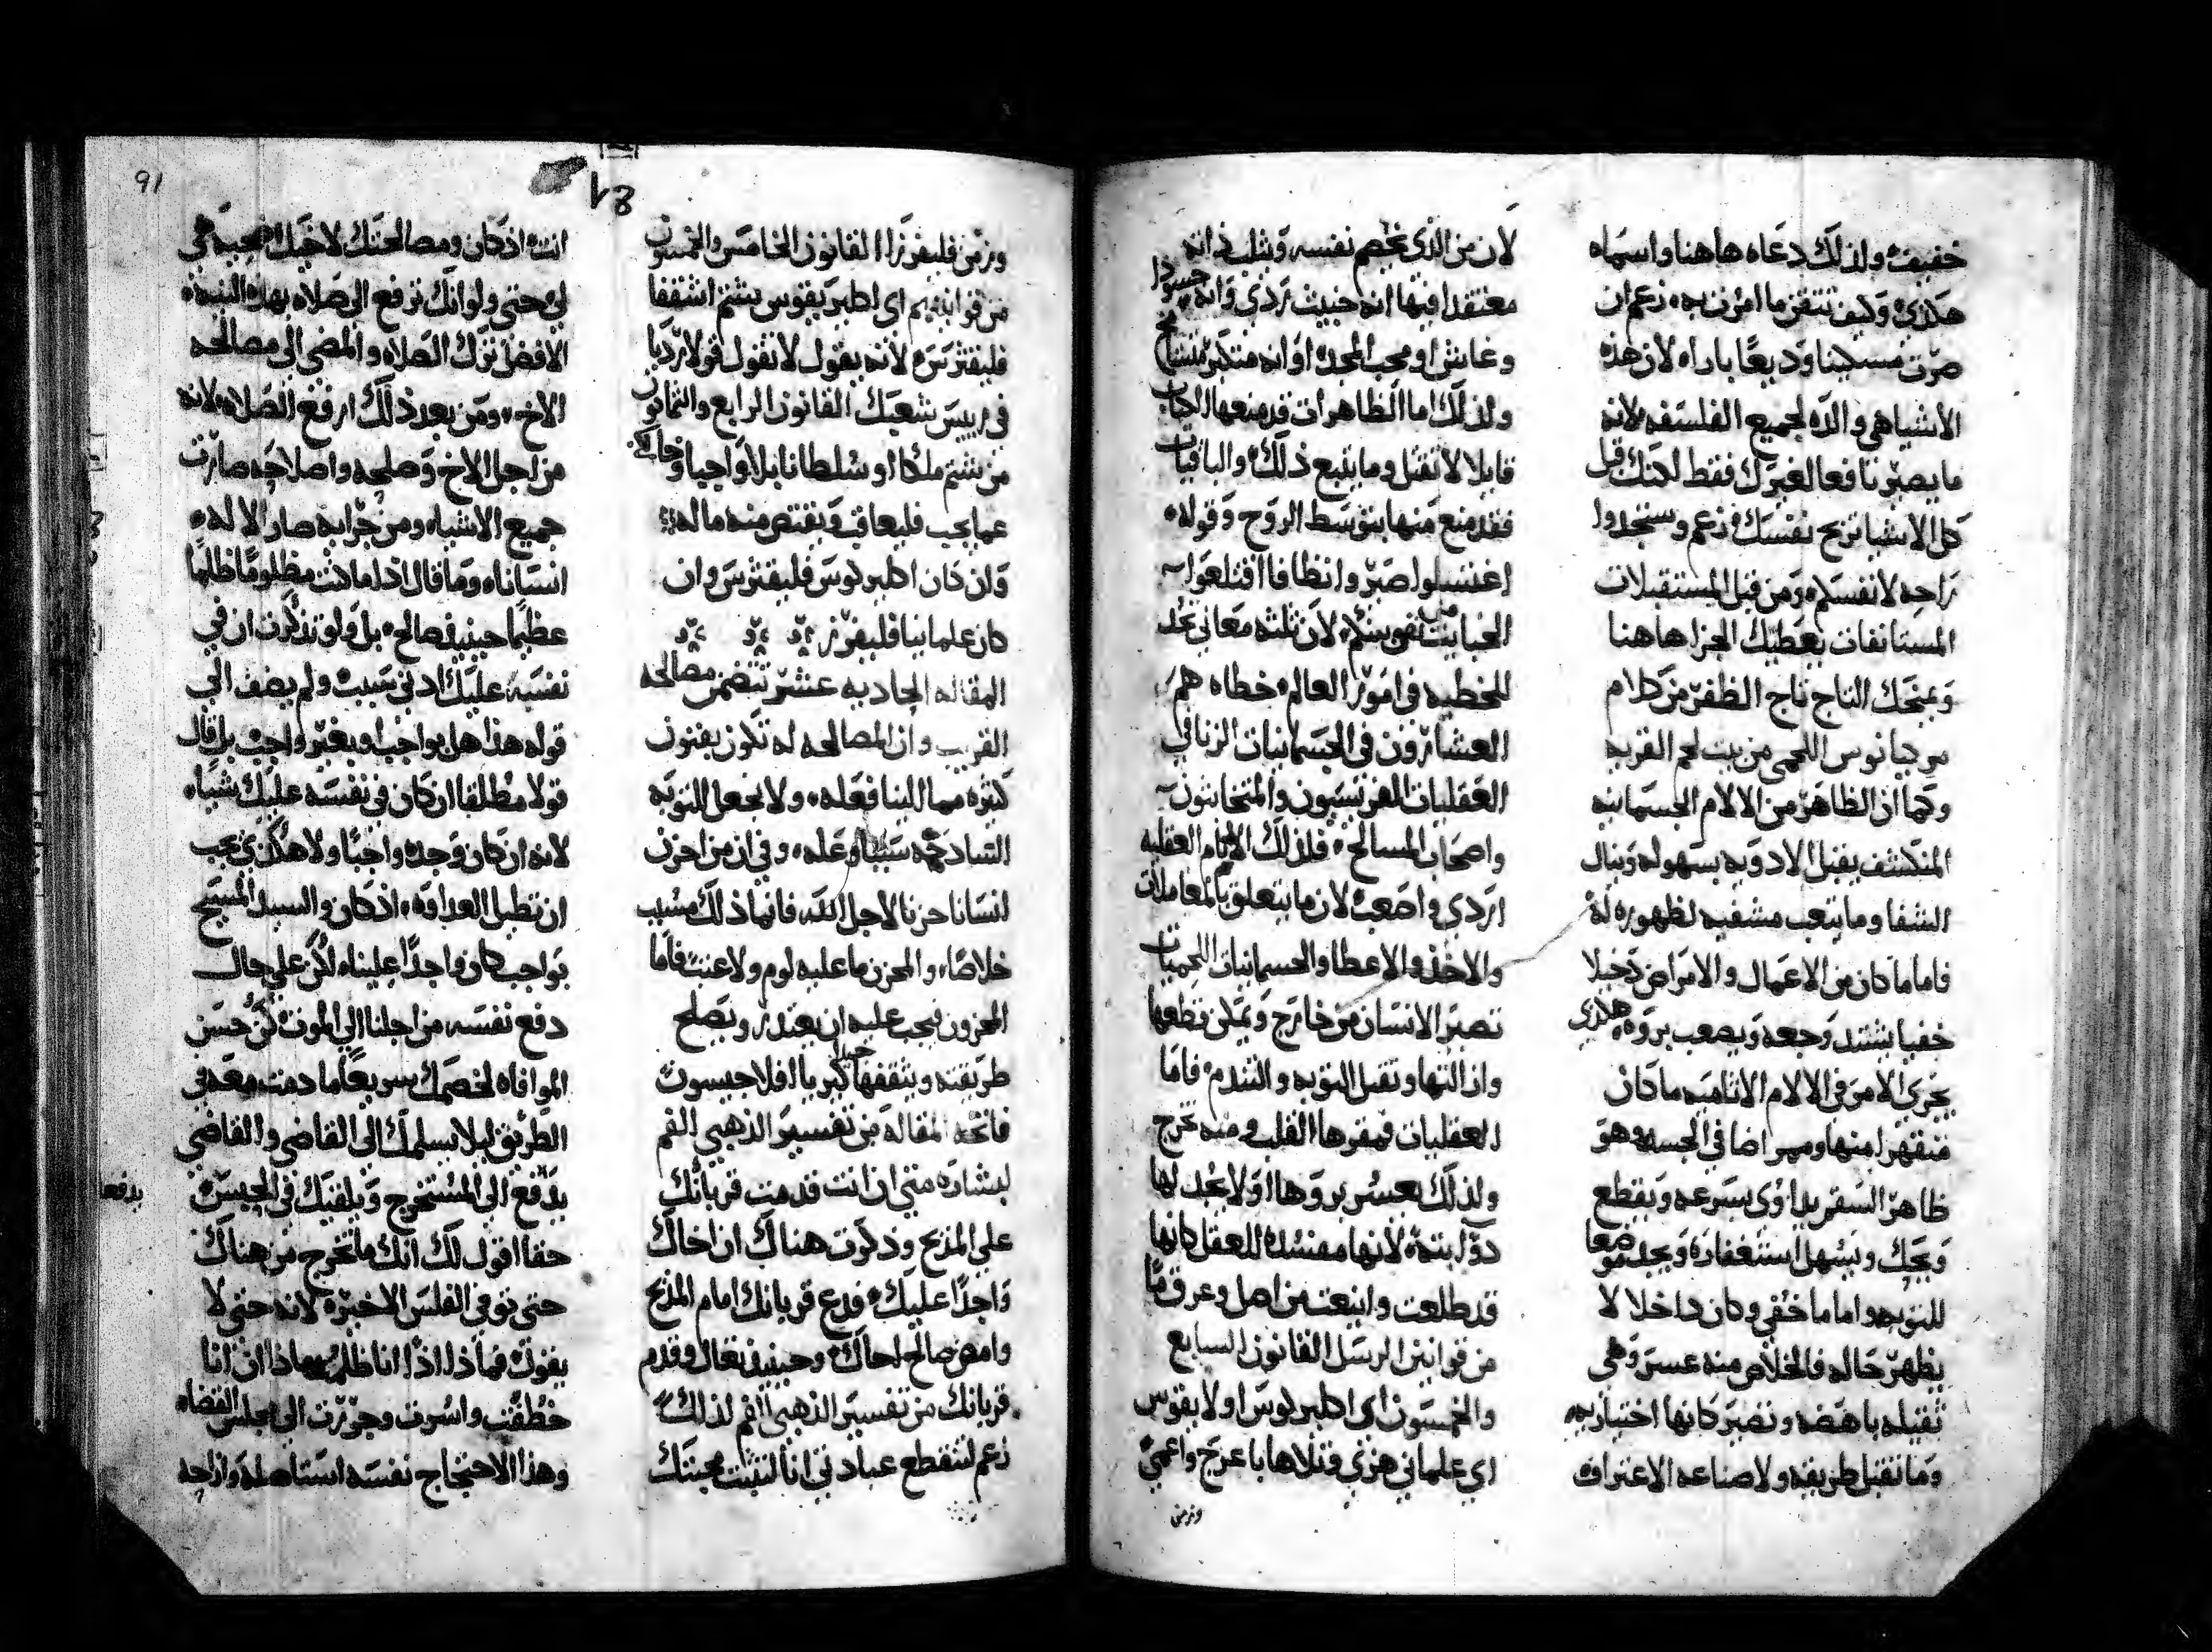 خفيفه ولذلك دعاه هاهنا واسماه
هكذى وكيف تتقن ما امرت به زعم ان
صرت مسكينا وديعًا باراه لان هذه
الاشيا هى والده لجميع الفلسفه لانه
ما يصير نافعا لغيرك فقط لكنك قبل
كل الاشيا تريح نفسك زعم وستجدوا
راحه لانفسكم ومن قبل المستقبلات
المستانفات يعطيك الجزا هاهنا
ويمنحك التاج تاج الظفر من كلام
مرحيانوس اللحمى من بيت لحم القريه
وكما ان الظاهر من الالام الجسمانيه
المنكشف يقبل الادويه بسهوله وينال
الشفا وما يتعب مشفيه لظهوره له
فاما ما كان من الاعمال والامراض دخيلا
خفيا يشتد وجعه ويصعب بروه هكذى
يجرى الامر فى الالام الاثاميه ما كان
منقهرا منها ومهراضا فى الجسد وهو
ظاهر السقم يداوى بسرعه ويقطع
ويحك ويسهل استغفاره ويجد موضعا
للتوبه واما ما خفى وكان داخلا لا
يظهر حاله فالخلاص منه عسر وهى
ثقيله باهضه وتصير كانها اختياريه
وما تقبل طريقه ولا صناعه الاعتراف
لان من الذى يخصم نفسه ويثلب ذاته
معتقدا فيها انه خبيث ردى وانه حسودا
وغاش او محب المجد او انه متكبر متشامخ
ولذلك اما الظاهرات قد منعها الكتاب
قايلا لا تقتل وما يتبع ذلك والباقيات
فقد منع منها بتوسط الروح وقوله
اغتسلوا صيروا نظافا اقتلعوا
الخبايث من نفوسكم لان ثلثه معانى تجد
للخطيه فى امور العالم خطاه هم
العشارون فى الجسمانيات الزنا فى
العقليات الفريسيون والمتخابثون
واصحاب المسالح فلذلك الاثام العقليه
اردى واصعب لان ما يتعلق بالمعاملات
والاخذ والاعطا والجسمانيات اللحميات
تصير الانسان من خارج ويمكن قطعها
وازالتها وتقبل التوبه والتندم فاما
العقليات فمقرها القلب ومنه تخرج
ولذلك يعسر بروها او لا يجد لها
دوا بتة لانها مفسده للعقل كانها
قد طلعت وانبعت من اصل وعرق ما
من قوانين الرسل القانون السابع
والخمسون اى اكليرلوس او لايقوس
اى علمانى هزى وتلاها باعرج واعمى
وزمن
وزمن فليفرز القانون الخامس والخمسون
من قوانينهم اى اكليريقوس يشتم اسقفا
فليقترس لانه يقول لا تقول قولا رديا
فى رييس شعبك القانون الرابع والثمانون
من يشتم ملكا او سلطانا بلا واجبا وخارج
عما يجب فليعاقب ويقتص منه ماله
وان كان اكليرلوس فليقترس وان
كان علمانيا فليفرز
المقاله الحاديه عشر تتضمن مصالحه
القريب وان المصالحه له تكون بفنون
كثيره مما الينا فعله ولا نجعل التوبه
الساذجه سببا وعله وفى ان من احزن
انسانا حزنا لاجل الله فانما ذلك مسبب
خلاصا والمحزن ما عليه لوم ولا عتب فاما
المحزون فيجب عليه ان يعتذر ويصلح
طريقته ويثقفها جدا كيريا لافلاجيسون
فاتحه المقاله من تفسير الذهبى الفم
لبشاره متى ان انت قدمت قربانك
على المذبح وذكرت هناك ان اخاك
واجدًا عليك فدع قربانك امام المذبح
وامض صالح اخاك وحينيذ تعال وقدم
قربانك من تفسير الذهبى الفم لذلك
زعم لتنقطع عبادتى انا لتثبت محبتك
91
انت اذ كان ومصالحتك لاخيك ضحيه هى
لى حتى ولو انك ترفع الى صلاه بهذه النيه
الافضل ترك الصلاه والمضى الى مصالحه
الاخ ومن بعد ذلك ارفع الصلاه لانه
من اجل الاخ وصلحه واصلاحه صارت
جميع الاشياء ومن جرايه صار الاله
انسانا وما قال اذا ما كنت مظلومًا ظلمًا
عظيما حينيذ صالح بل ولو تذكرت ان فى
نفسه عليك ادنى سبب ولم يضف الى
قوله هذا هل بواجب او بغير واجب بل قال
قولا مطلقا ان كان فى نفسه عليك شياء
لانه ان كان وجده واجبًا ولا هكذى يجب
ان تطيل العداوه اذ كان والسيد المسيح
بواجب كان واجدًا علينا لكن على حال
دفع نفسه من اجلنا الى الموت كن حسن
الموافاه لخصمك سريعا ما دمت معه فى
الطريق ليلا يسلمك الى القاضى والقاضى
يدفع الى المستخرج ويلقيك فى الحبس
حقا اقول لك انك ما تخرج من هناك
حتى توفى الفلس الاخير لانه حتى لا
يقول فماذا اذا انا ظلمت ماذا ان انا
خطفت واسرت وجررت الى مجلس القضا
وهذا الاحتجاج نفسه استاصله وازاحه
يدفعا